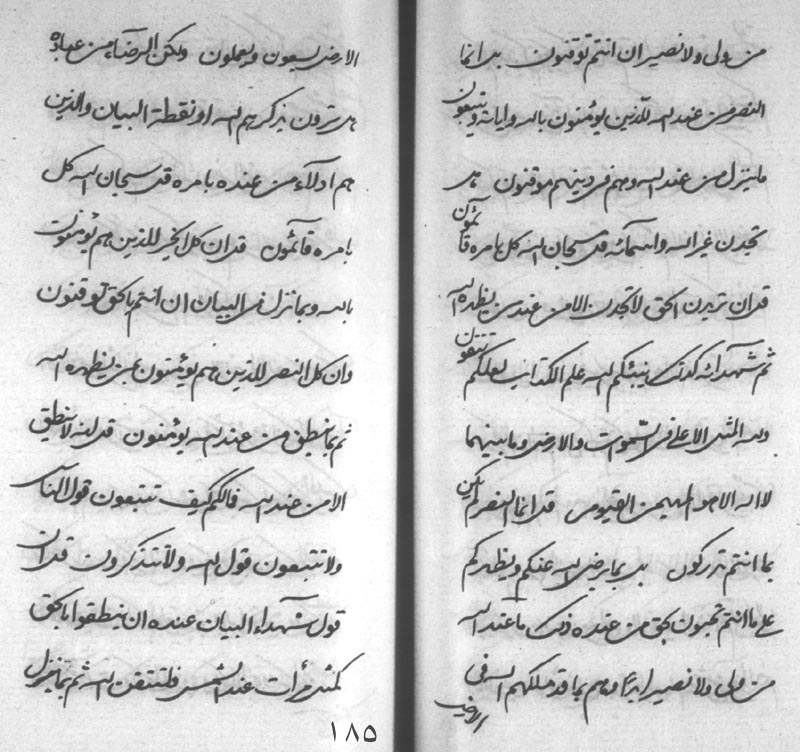 من ولی ولا نصیر ان انتم توقنون بل انما
النصر من عند الله للذین یؤمنون بالله وایاته ویتبعون
ما ینزل من عند الله وهم فی دینهم موقنون هل
تجدن غیر الله واسمائه قل سبحان الله کل بامره قائمون
قل ان تریدن الحق لا تجدن الا من عند من یظهره الله
ثم شهدائه کذلک ینبئکم الله علم الکتاب لعلکم تتقون
وله المثل الاعلی فی السموات والارض وما بینهما
لا اله الا هو المهیمن القیوم قل انما النصر
بما انتم تدرکون بل بما یرضی الله عنکم ویظهرکم
علی ما انتم تحبون بحق من عنده ذلک ما عند الله
من ولی ولا نصیر وهم بما قد ملکهم الله فی الارض
الارض یسعون ویعملون ولکن الرضاء من عباده
هل ترون یذکرهم الله او نقطة البیان والذین
هم ادلاء من عنده بامره قل سبحان الله کل
بامره قائمون قل ان کل الخیر للذین هم یؤمنون
بالله وبما نزل فی البیان ان انتم بالحق توقنون
وان کل النصر للذین هم یؤمنون بمن یظهره الله
ثم بما ینطق من عند الله یؤمنون قل انه لا ینطق
الا من عند الله فما لکم کیف تتبعون قول الناس
ولا تتبعون قول الله ولا تتذکرون قل ان
قول شهداء البیان عنده ان ینطقوا بالحق
کمثل مرأت عند الشمس فلتتقن الله ثم بما
۱۸۵